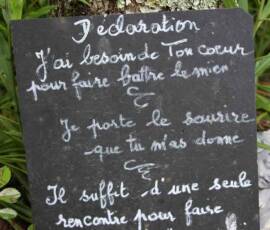 Déclaration
J'ai besoin de Ton coeur
pour faire battre le mien
Je porte le sourire
que tu m'as donné
Il suffit d'une seule
rencontre pour faire